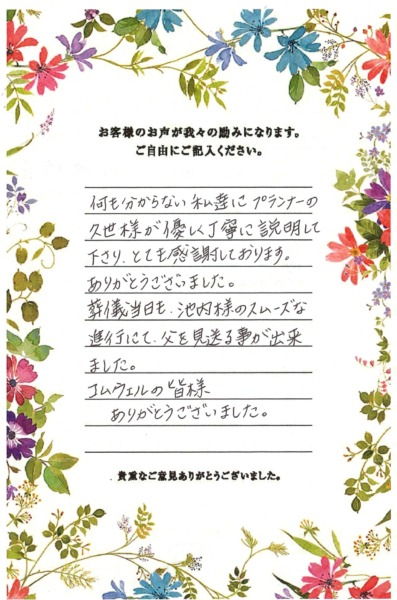 お客様のお声が我々の励みになります。
ご自由にご記入ください。
何も分からない私達にプランナーの
久世様が優しく丁寧に説明して
下さり、とても感謝しております。
ありがとうございました。
葬儀当日も、池内様のスムーズな
進行にて、父を見送る事が出来
ました。
コムウェルの皆様
ありがとうございました。
貴重なご意見ありがとうございました。